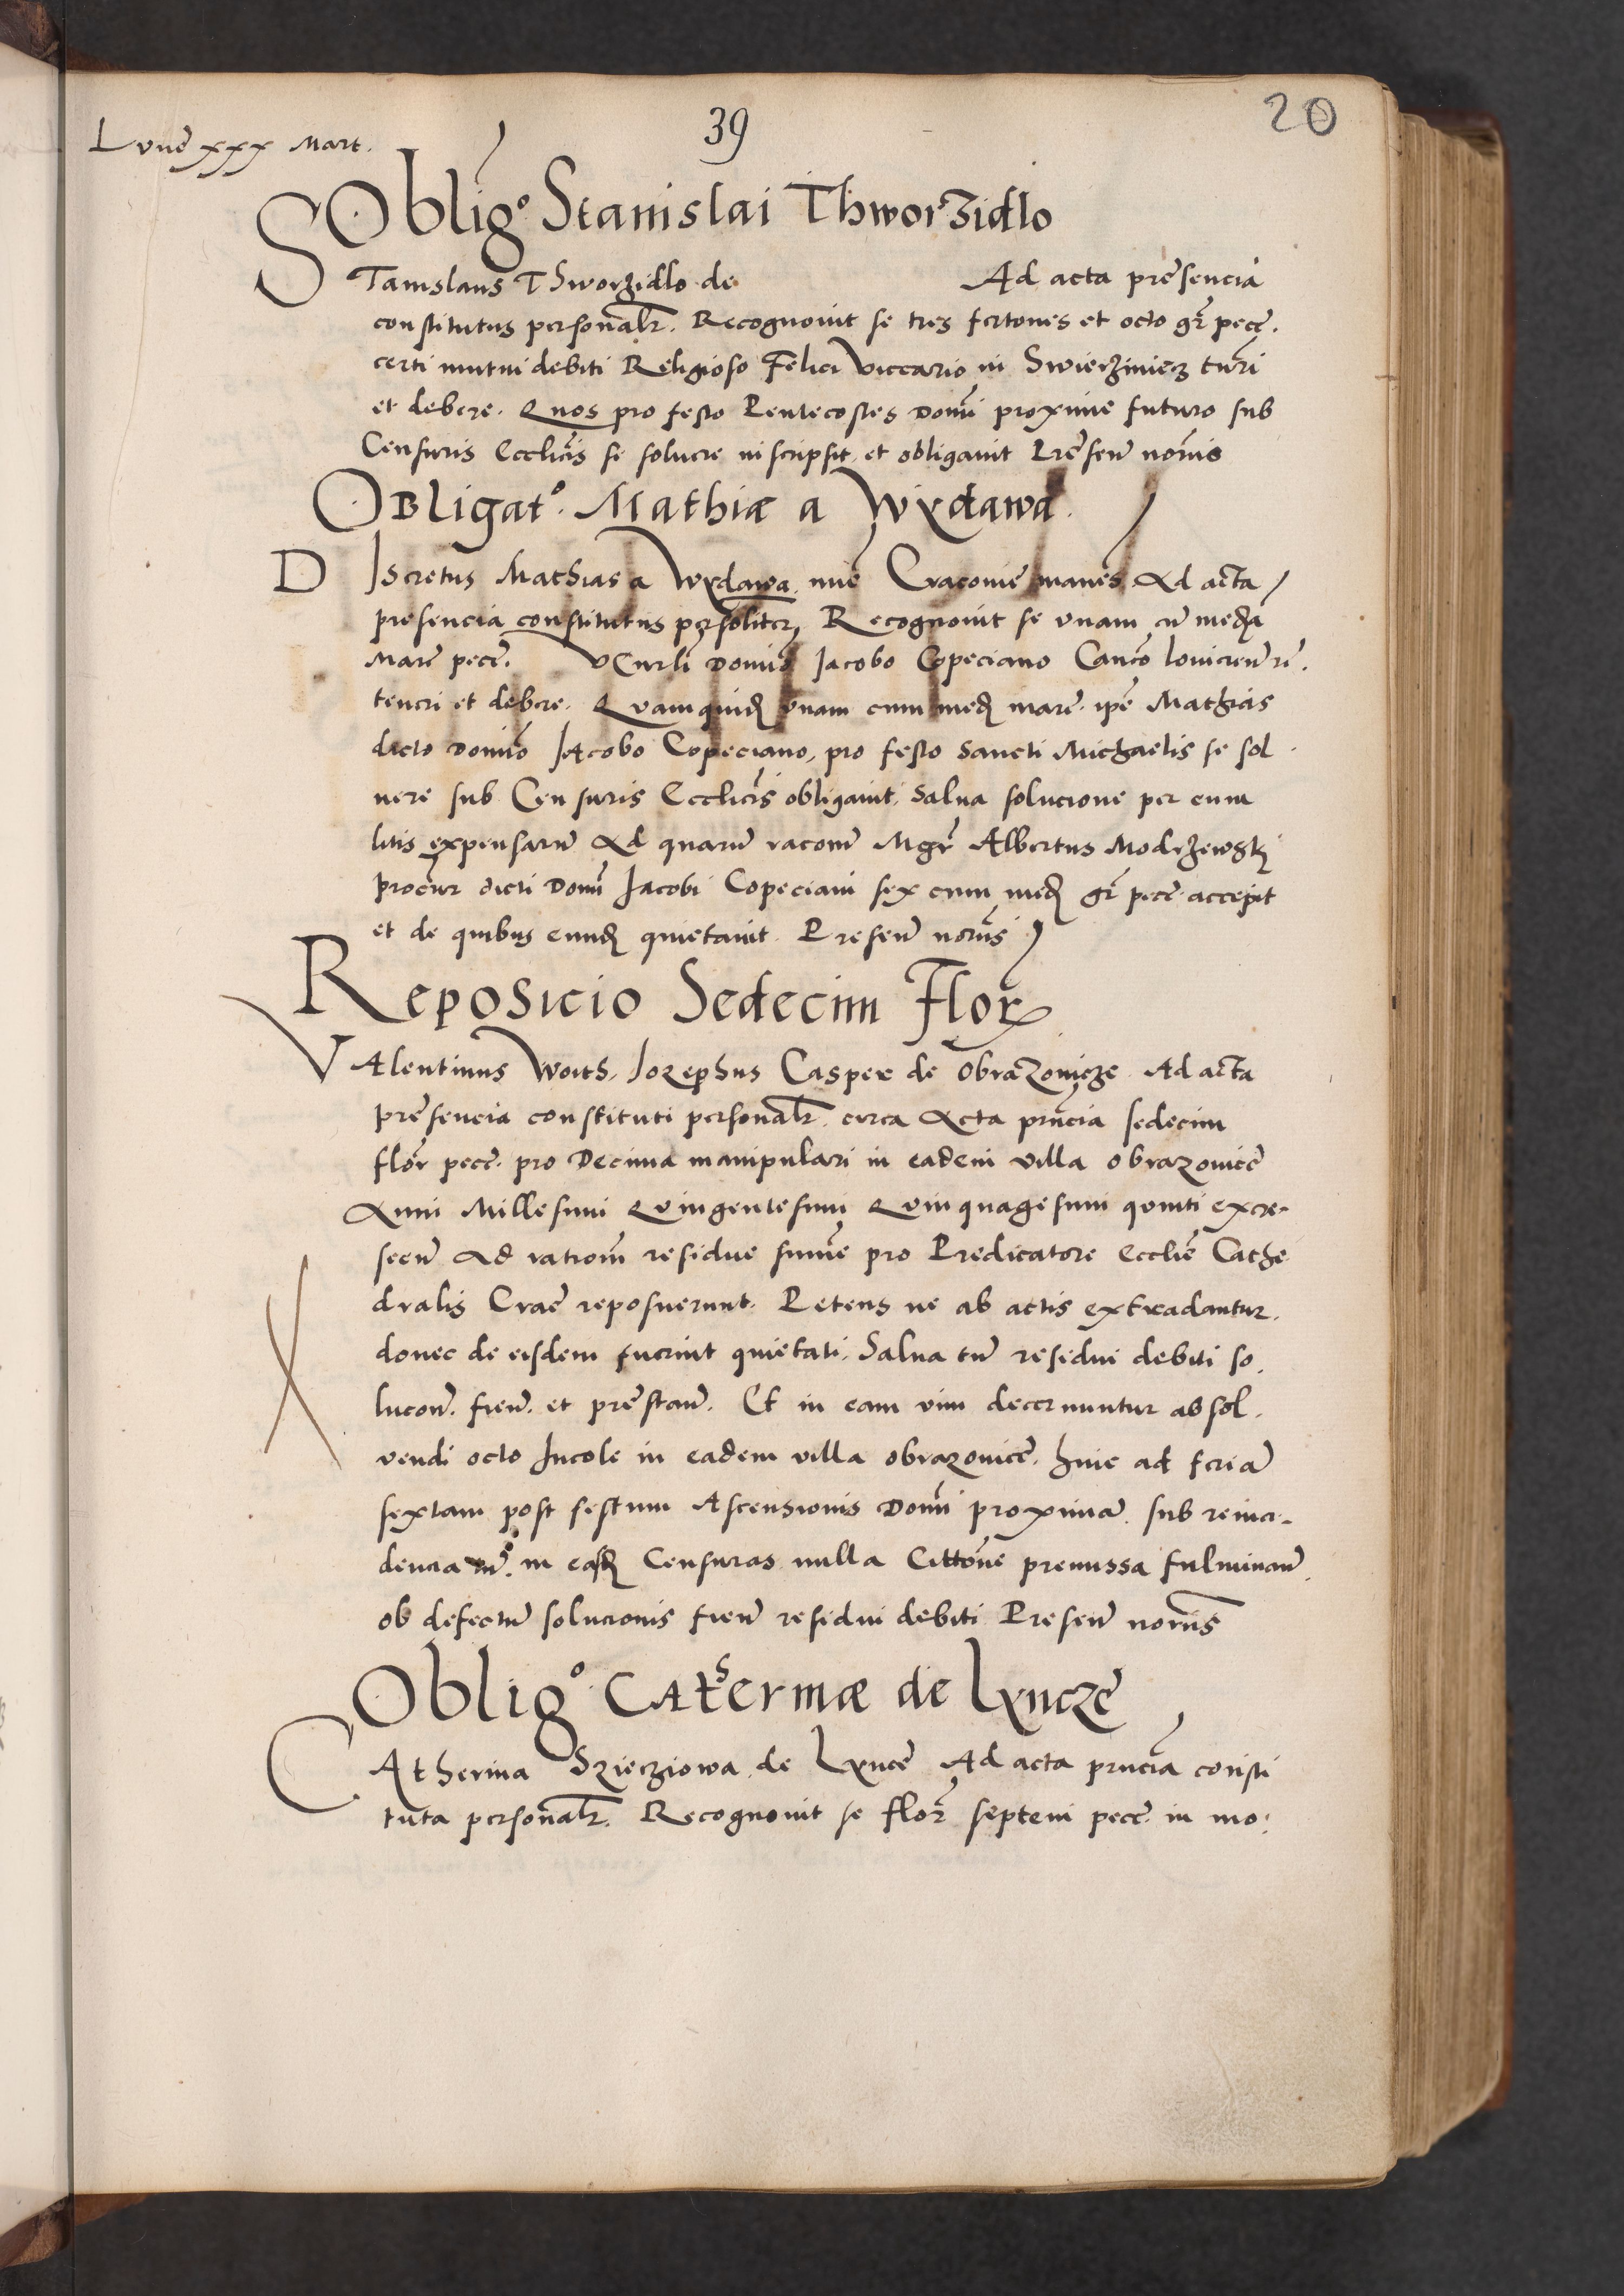 39
20
Lune xxx Mart.
Obligo Stanislai Thworzidlo
STanislaus Thworzidlo de Ad acta presencia
constitutus personalr. Recognouit se tres fertones et octo gr pecc.
certi mutui debiti Religioso Felici Viccario in Swierziniecz tenri
et debere. Quos pro festo Pentecostes Domi proxime futuro sub
Censuris Ecclicis se soluere inscripsit et obligauit Presen nomis
Obligato. Mathiæ a Wydawa.
DIscretus Mathias a Wydawa nunc Cracovie manens Ad acta
presencia constitutus personliter Recognouit se vnam cu media
Marc pecc. Domino Jacobo Copeciano Canco lovicien
teneri et debere. Quamquid vnam cum med marc. ipe Mathias
dicto Domino Jacobo Copeciano, pro festo Sancti Michaelis se sol
uere sub Censuris Ecclicis obligauit, Salua solucione per eum
litis expensaru Ad quaru racom Mgr Albertus Modrzewsky
procur dicti Domi Jacobi Copeciani sex cum med gr pecc. accepit
et de quibus eund quietauit. Presen nomis
Reposicio Sedecim Flor
VAlentinus Woith, Jozephus Casper de Obrazonicze Ad acta
presencia constituti personalr. circa Acta prncia sedecim
flor pecc. pro Decima manipulari in eadem villa obrazonice
Anni Millesimi Quingentesimi Quinquagesimi quinti excre-
scen Ad rationem residue summe pro Predicatore Ecclie Cathe
dralis Crac reposuerunt. Petens ne ab actis extradantur.
donec de eisdem fuerint quietati. Salua tn residui debiti so.
lucon. fien. et prestan. Et in eam vim decernuntur absol.
vendi octo Incole in eadem villa obrazonice. hinc ad feria
sextam post festum Ascensionis Domi proxima. sub reinci-
dencia in easd Censuras nulla Cittone premissa fulminan.
ob defectu solucionis fien residui debiti Presen nomis
Obligo Catherinæ de Lyncze
CAtherina Szieziowa de Lynce Ad acta prncia consti
tuta personalr. Recognouit se flor septem pecc. in mo: